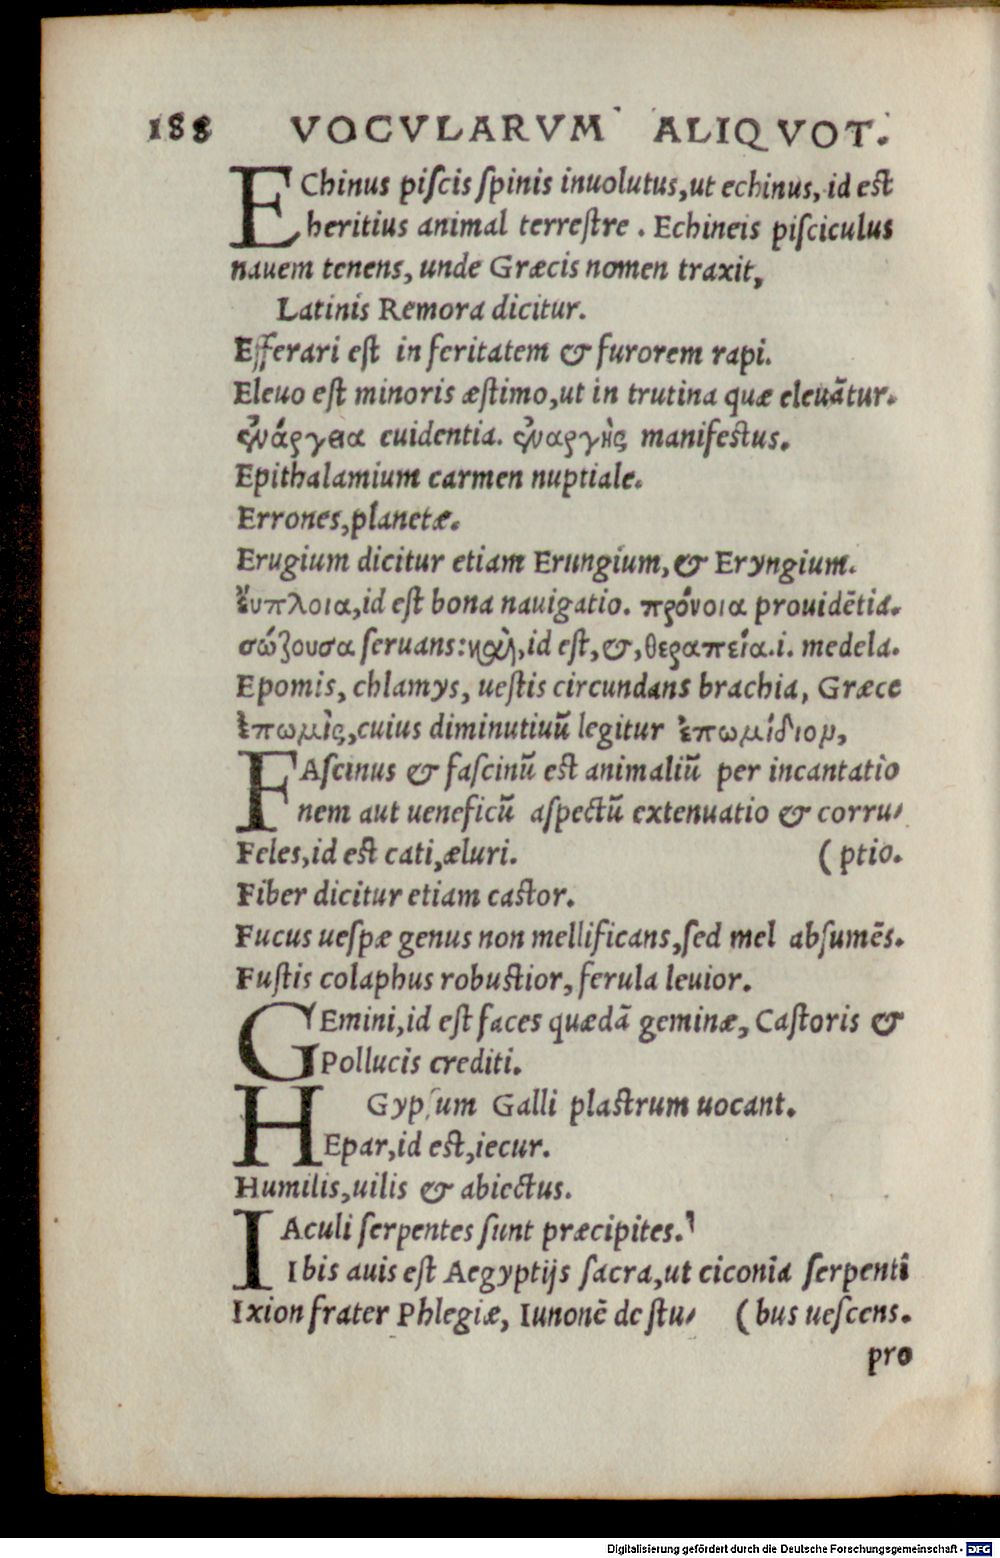 188 VOCVLARVM ALIQVOT.
EChinus piſcis ſpinis inuolutus,ut echinus, id eſt
heritius animal terreſtre . Echineis piſciculus
nauem tenens, unde Græcis nomen traxit,
Latinis Remora dicitur.
Efferari eſt in feritatem & furorem rapi.
Eleuo eſt minoris æſtimo,ut in trutina quæ eleuãtur.
ἐνάργεια euidentia. ἐναργὴς manifeſtus.
Epithalamium carmen nuptiale.
Errones,planetæ.
Erugium dicitur etiam Erungium,& Eryngium.
ἔυπλοια,id eſt bona nauigatio. πρόνοια prouidẽtia.
σώζουσα ſeruans:καὶ,id eſt,&,θεραπεία.i. medela.
Epomis, chlamys, ueſtis circundans brachia, Græce
ἐπωμὶς,cuius diminutiuũ legitur ἐπωμίδιον,
FAſcinus & faſcinũ eſt animaliũ per incantatio
nem aut ueneficũ aſpectũ extenuatio & corru-
Feles,id eſt cati,æluri. (ptio.
Fiber dicitur etiam caſtor.
Fucus ueſpæ genus non mellificans,ſed mel abſumẽs.
Fuſtis colaphus robuſtior, ferula leuior.
GEmini,id eſt faces quædã geminæ, Caſtoris &
Pollucis crediti.
Gypſum Galli plaſtrum uocant.
HEpar,id eſt,iecur.
Humilis,uilis & abiectus.
IAculi ſerpentes ſunt præcipites.
Ibis auis eſt Aegyptijs ſacra,ut ciconia ſerpenti
Ixion frater Phlegiæ, Iunonẽ de ſtu- (bus ueſcens.
pro
Digitalisierung gefördert durch die Deutsche Forschungsgemeinschaft - DFG